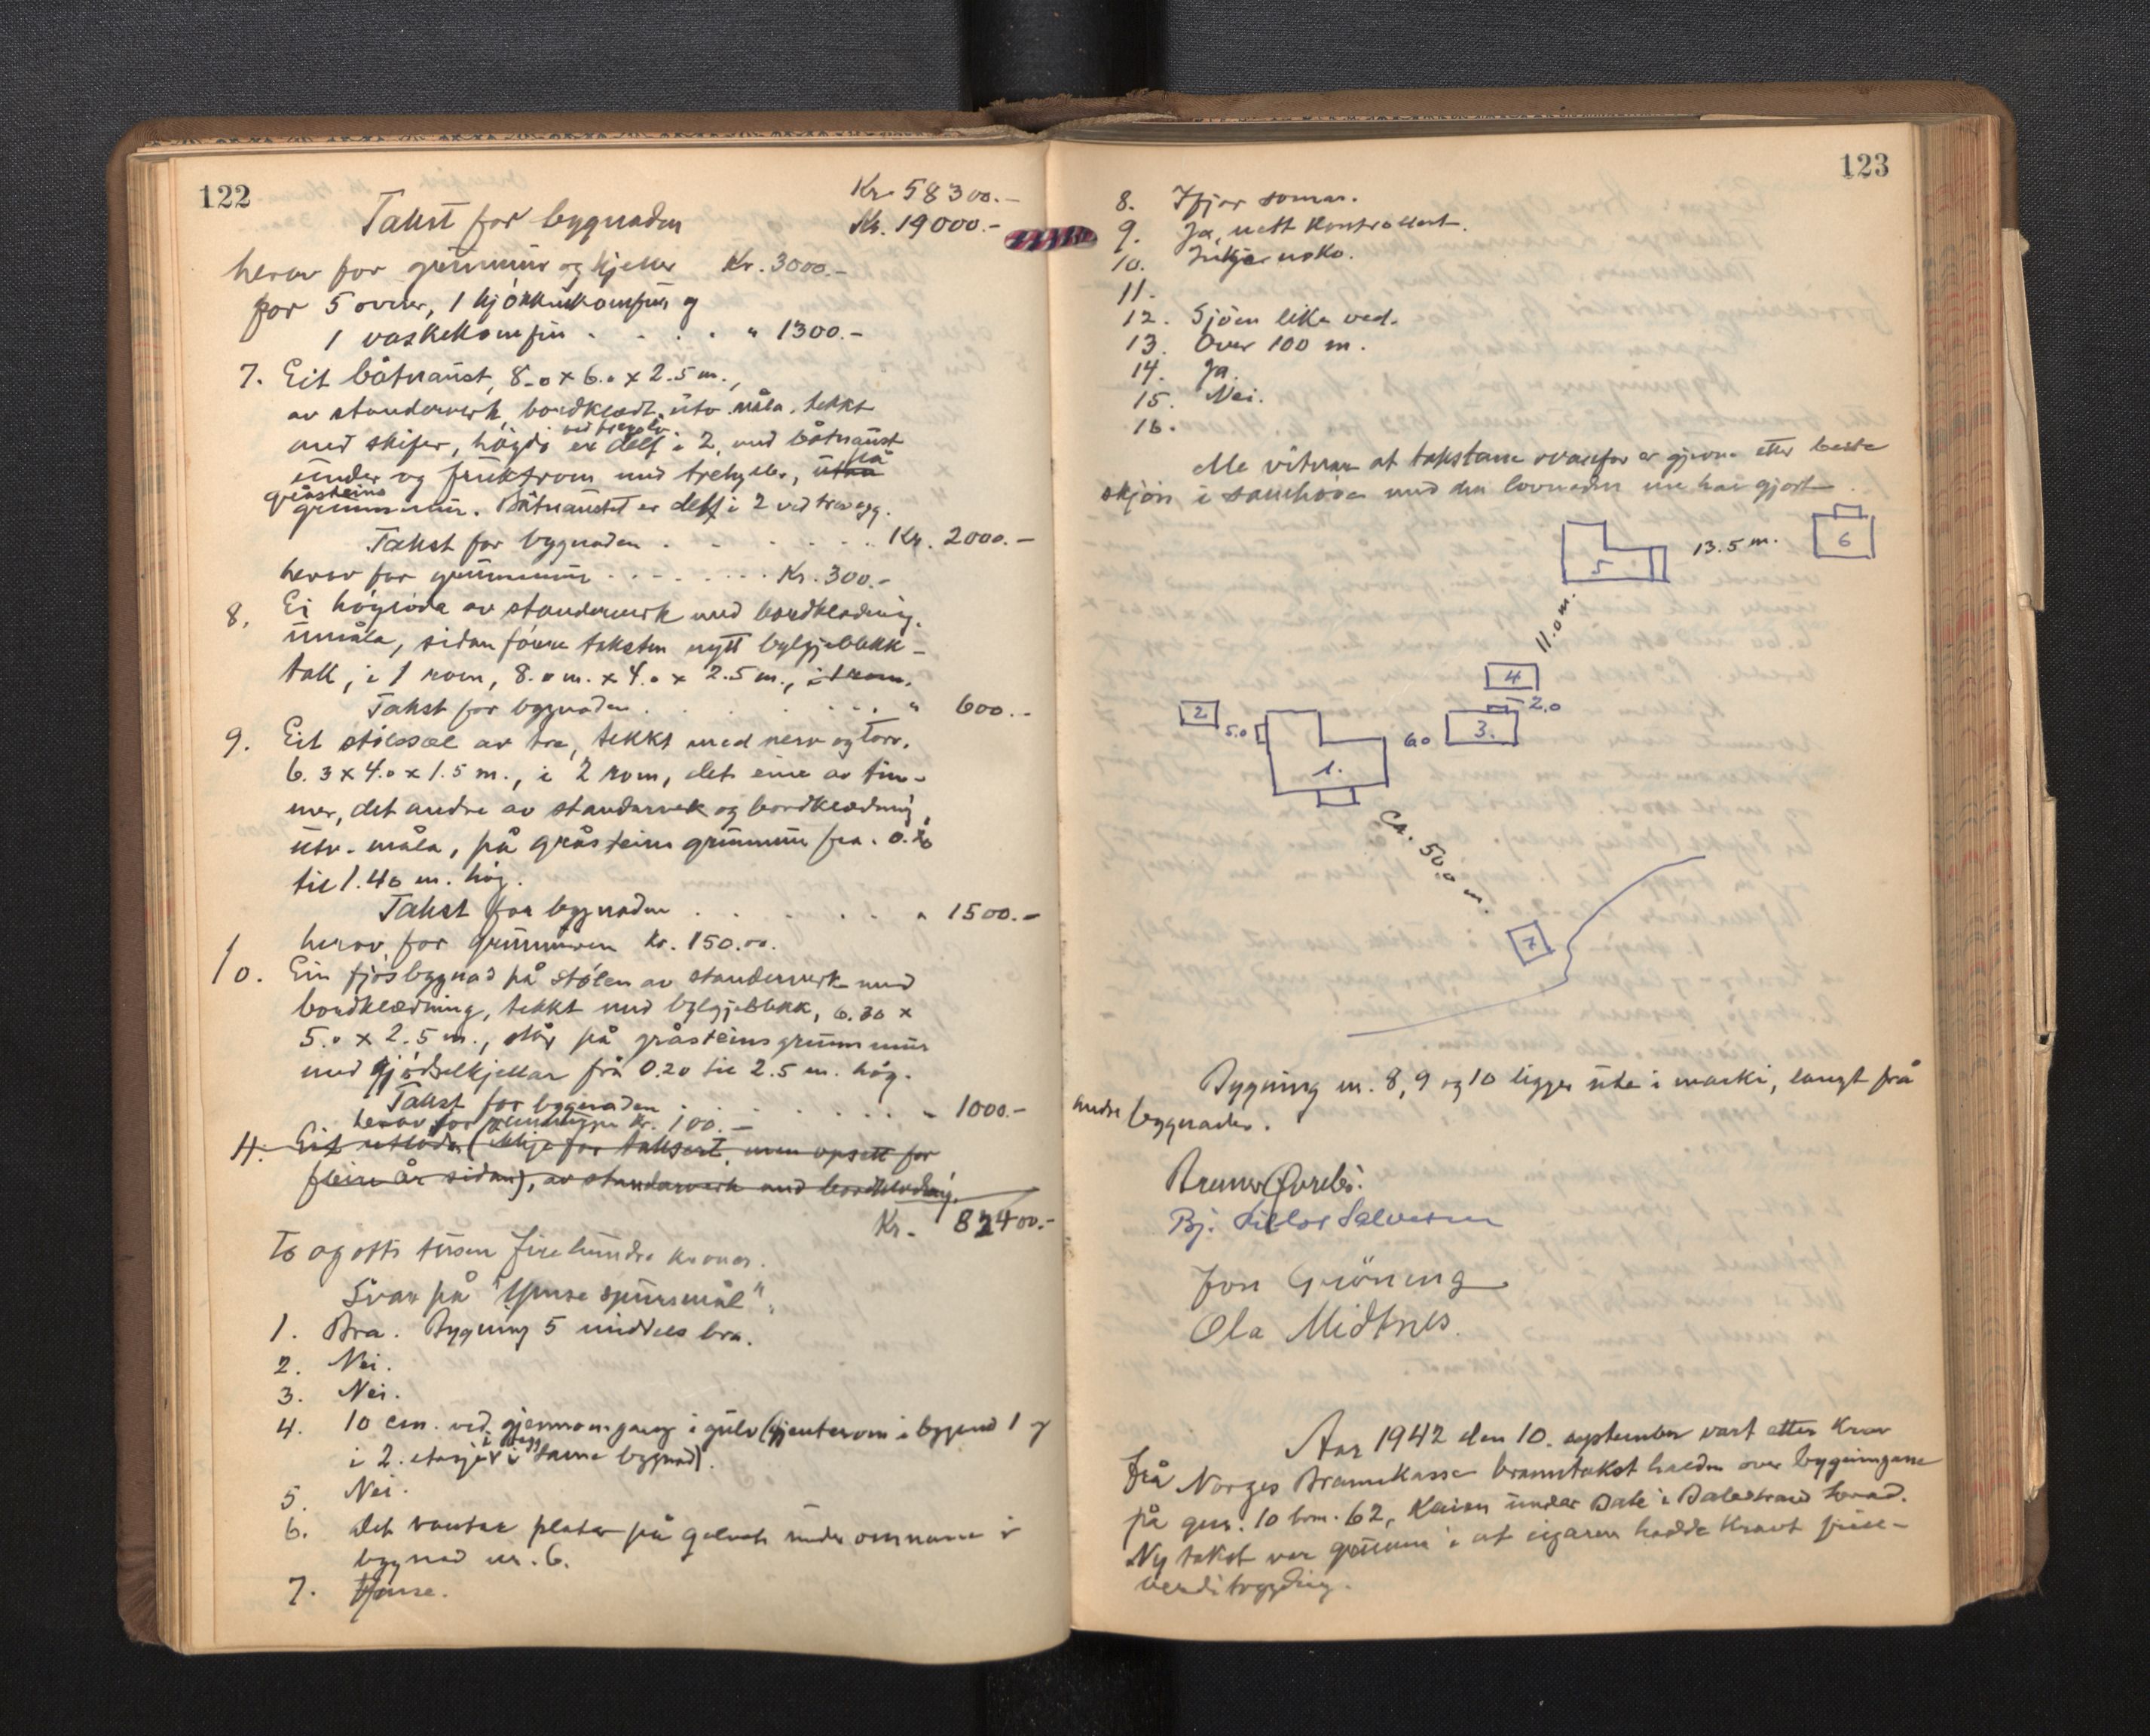 122
Kr. 58300.-
Takst for bygnaden Kr. 19000.-
herav for grunnmur og kjeller Kr. 3000.-
for 5 ovner, 1 kjökkenkomfur og
1 vaskekomfur . . . . " 1300.-
7. Eit båtnaust, 8.0 x 6.0 x 2.5 m.,
av standerverk, bordklædt, utv. måla, tekkt
med skifer, högdi er delt i 2, med båtnaust
ved tregolv
under og fruktrom med trehyller, utan
på
gråsteins
grunnmur. Båtnaustet er delt i 2 ved trevegg.
Takst for bygnaden . . . . . . Kr. 2000.-
herav for grunnmur . . . . . . Kr. 300.-
8. Ei höyloda av standerverk med bordklædnig.
umåla, sidan förre taksten nytt bylgjeblekk-
tak, i 1 rom, 8.0 m. x 4.0 x 2.5 m., i 1 rom.
Takst for bygnaden . . . . . . " 600.-
9. Eit stölssel av tre, tekkt med never og torv,
6.3 x 4.0 x 1.5 m., i 2 rom, det eine av tim-
mer, det andre av standarverk og bordklædning,
utv. måla, på gråsteins grunnmur fra 0.20
til 1.40 m. hög.
Takst for bygnaden . . . . . . " 1500.-
herav for grunnmuren Kr. 150.00.
10. Ein fjösbygnad på stölen av standerverk med
bordklædning, tekkt med bylgjeblekk, 6.30 x
5.0 x 2.5 m., står på gråsteinsgrunnmur
med gjödselkjellar frå 0.20 til 2.5 m. hög.
Takst for bygnaden . . . . . . " 1000.-
herav for grunnmuren Kr. 100.-
11. Eit utloda (ikkje for taksert, men opsett for
fleire år sidan), av standarverk med bordklædnig.
Kr. 82400.-
To og otti tusen fire hundre kroner.
Svar på "Ymse spursmål".
1. Bra. Bygning 5 middels bra.
2. Nei.
3. Nei.
4. 10 cm. ved gjennomgang i gulv (gjenterom i bygnad 1 og
i 2. etasje i vegg i same bygnad).
5. Nei.
6. Det vantar plater på golvet under omnane i
bygnad nr. 6.
7. Ymse.
123
8. Ifjor somar.
9. Ja, vert kontrollert.
10. Inkje noko.
11.
12. Sjöen like ved.
13. Over 100 m.
14. Ja.
15. Nei.
16.
Me vitnar at takstane ovanfor er gjevne etter beste
skjön i samhöve med den lovnaden me har gjort.
5
13.5 m.
6
11.0 m.
4
2.0
2
5.0
1.
6.0
3.
Ca. 50.0 m.
7
Bygning nr. 8, 9 og 10 ligger ute i marki, langt frå
andre bygnader.
Bremer Övrebö.
Bj. Sillos Salvesen
Jon Gröning
Ola Midtnes.
Aar 1942 den 10. september vart etter krav
frå Norges Brannkasse branntakst halden over bygningane
på gnr. 10 bnr. 62, Kaien under Dale i Balestrand herad.
Ny takst var grunna i at eigaren hadde kravt full-
verditrygding.